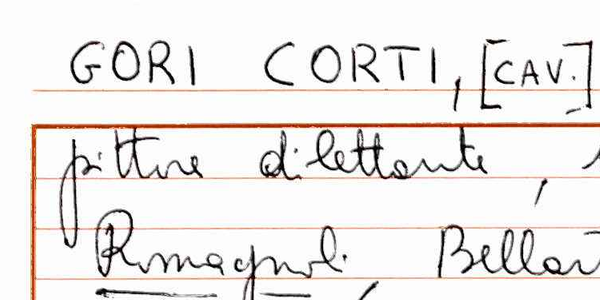 GORI CORTI, [CAV.]
pittore dilettante,
Romagnoli Bellar